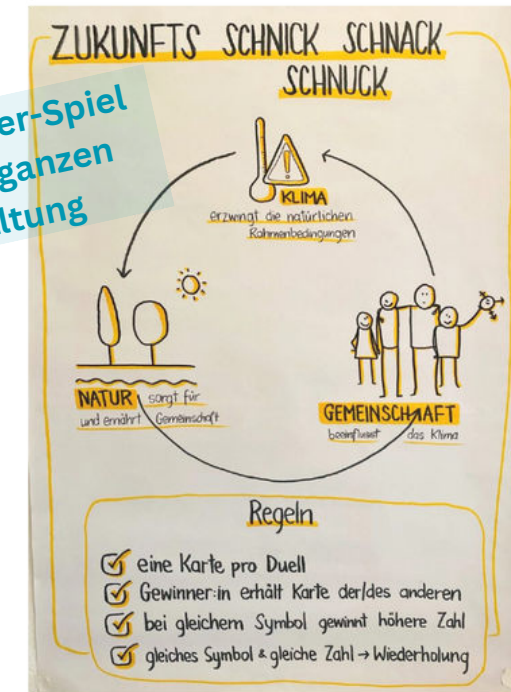 ZUKUNFTS SCHNICK SCHNACK
SCHNUCK
er-Spiel
ganzen
ltung
KLIMA
erzwingt die natürlichen
Rahmenbedingungen
NATUR sorgt für
und ernährt Gemeinschaft
GEMEINSCHAFT
beeinflusst das Klima
Regeln
eine Karte pro Duell
Gewinner:in erhält Karte der/des anderen
bei gleichem Symbol gewinnt höhere Zahl
gleiches Symbol & gleiche Zahl → Wiederholung